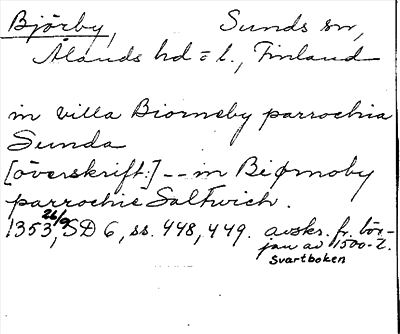 Björby, Sunds sn,
Ålands hd = l., Finland
in villa Biornsby parrochia
Sunda
[överskrift:] -- in Beørnoby
parrochie Saltwich.
1353 26/9, SD 6, ss. 448, 449. avskr. fr. bör-
jan av 1500-t.
Svartboken